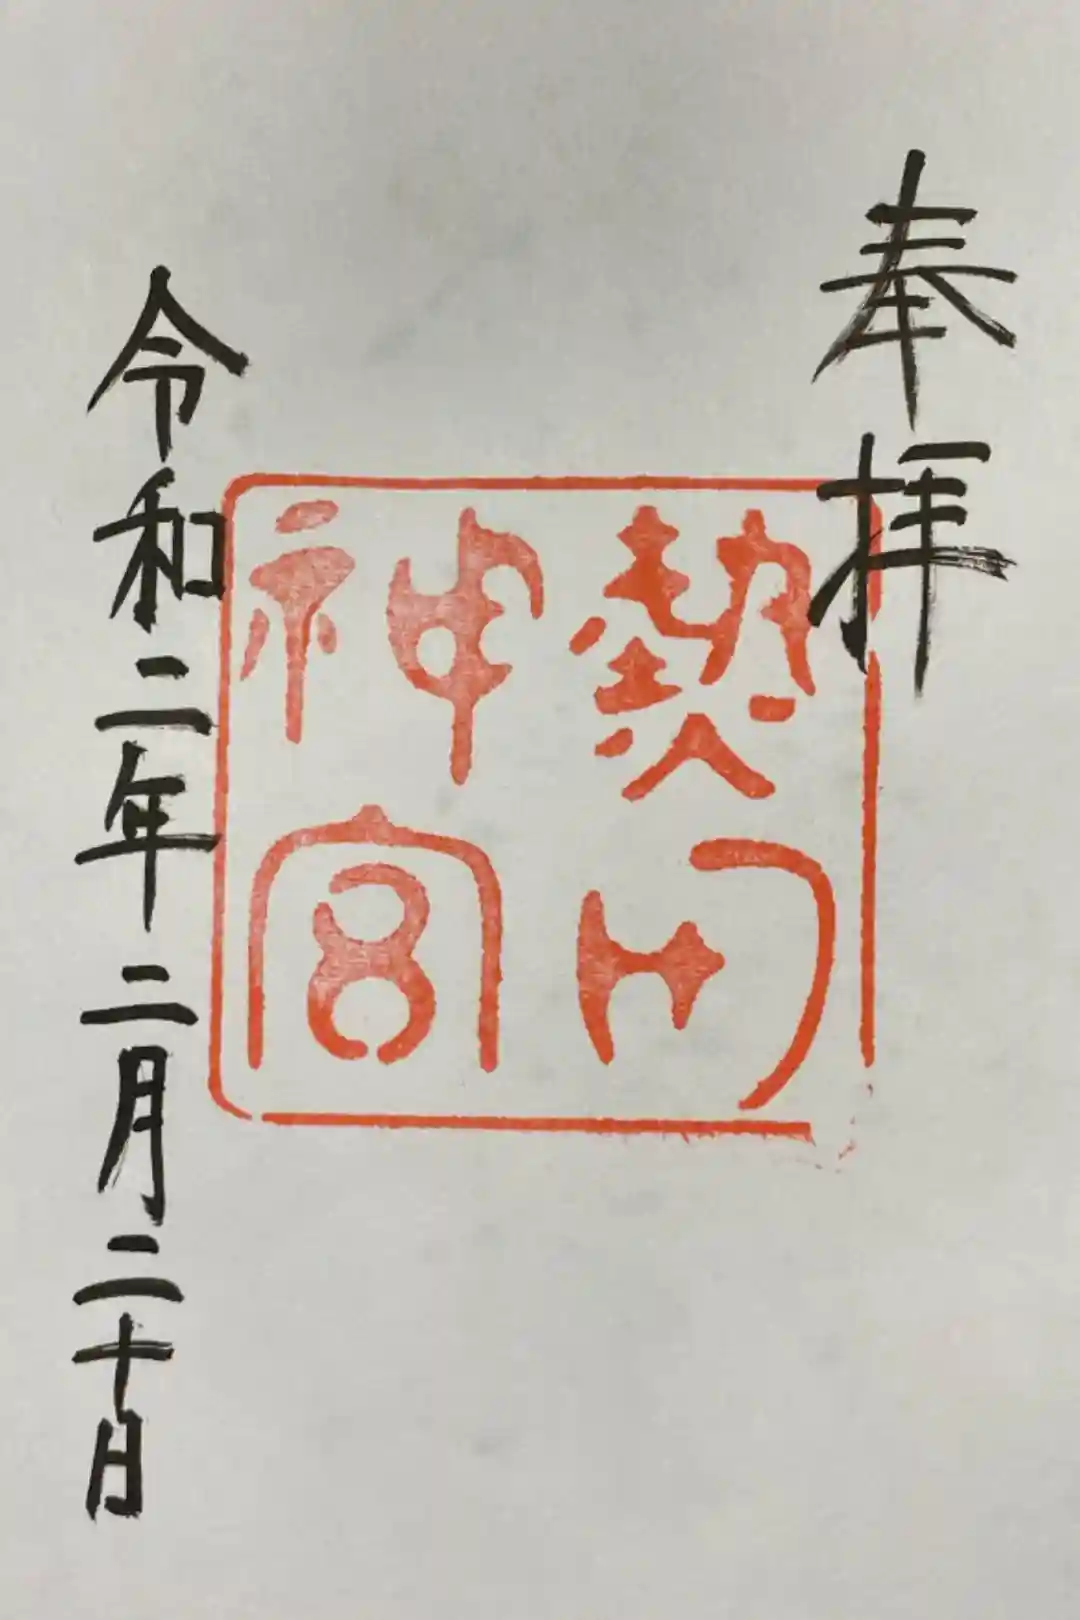 奉拝
熱田
神宮
令和二年二月二十日